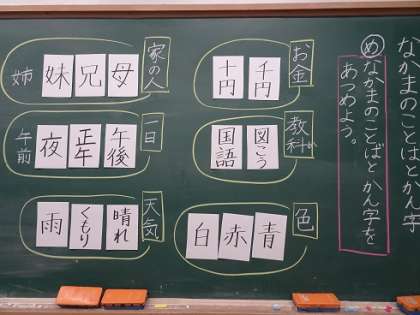 なかまのことばとかん字
めなかまのことばとかん字を
あつめよう。
お金
千円
十円
教科
図こう
国語
色
青
赤
白
家の人
母
兄
妹
姉
日
午後
正午
夜
午前
天気
晴れ
くもり
雨